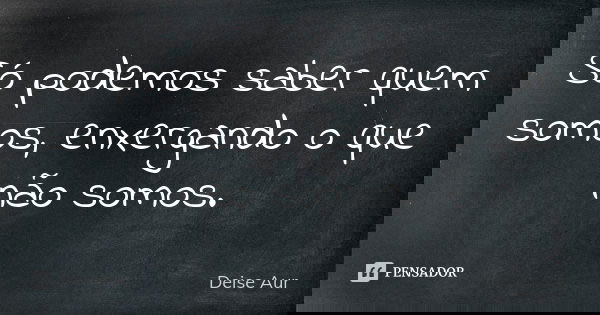 Só podemos saber quem
somos, enxergando o que
não somos.
Deise Aur
PENSADOR